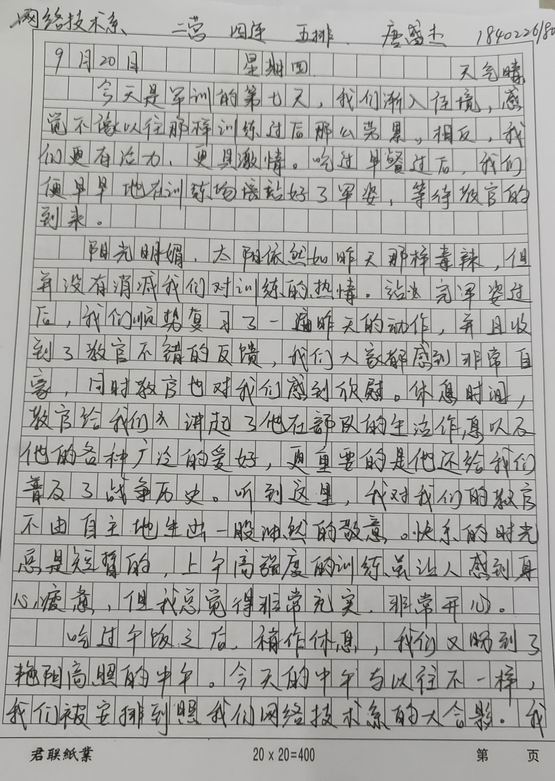 网络技术系 二营 四连 五排 唐盛杰 1840226180
9月20日 星期四 天气晴
今天是军训的第七天，我们渐入佳境，感
觉不像以往那样训练过后那么劳累，相反，我
们更有活力，更具激情。吃过早餐过后，我们
便早早地在训练场 站好了军姿，等待教官的
到来。
阳光明媚，太阳依然如昨天那样毒辣，但
并没有消减我们对训练的热情。站 完军姿过
后，我们顺势复习了一遍昨天的动作，并且收
到了教官不错的反馈，我们大家都感到非常自
豪，同时教官也对我们感到欣慰。休息时间，
教官给我们 讲起了他在部队的生活作息以及
他的各种广泛的爱好，更重要的是他还给我们
普及了战争历史。听到这里，我对我们的教官
不由自主地生出一股油然的敬意。快乐的时光
总是短暂的，上午高强度的训练虽让人感到身
心疲惫，但我总觉得非常充实，非常开心。
吃过午饭之后，稍作休息，我们又盼到了
艳阳高照的中午。今天的中午与以往不一样，
我们被安排到照我们网络技术系的大合影。我
君联紙業 20×20=400 第 页